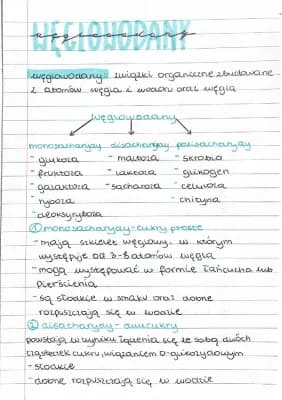 WĘGLOWODANY
węglowodany
węglowodany- związki organiczne zbudowane
z atomów węgla i wodoru oraz węgla
węglowodany
monosacharydy disacharydy polisacharydy
- glukoza - maltoza - skrobia
- fruktoza - laktoza - glikogen
- galaktoza - sacharoza - celuloza
- ryboza - chityna
- deoksyryboza
① monosacharydy- cukry proste
- mają szkielet węglowy, w którym
występuje od 3-8 atomów węgla
- mogą występować w formie łańcucha lub
pierścienia
- są słodkie w smaku oraz dobrze
rozpuszczają się w wodzie
② disacharydy- dwucukry
powstają w wyniku łączenia się ze sobą dwóch
cząsteczek cukru, wiązaniem O-glikozydowym
- słodkie
- dobrze rozpuszczają się w wodzie